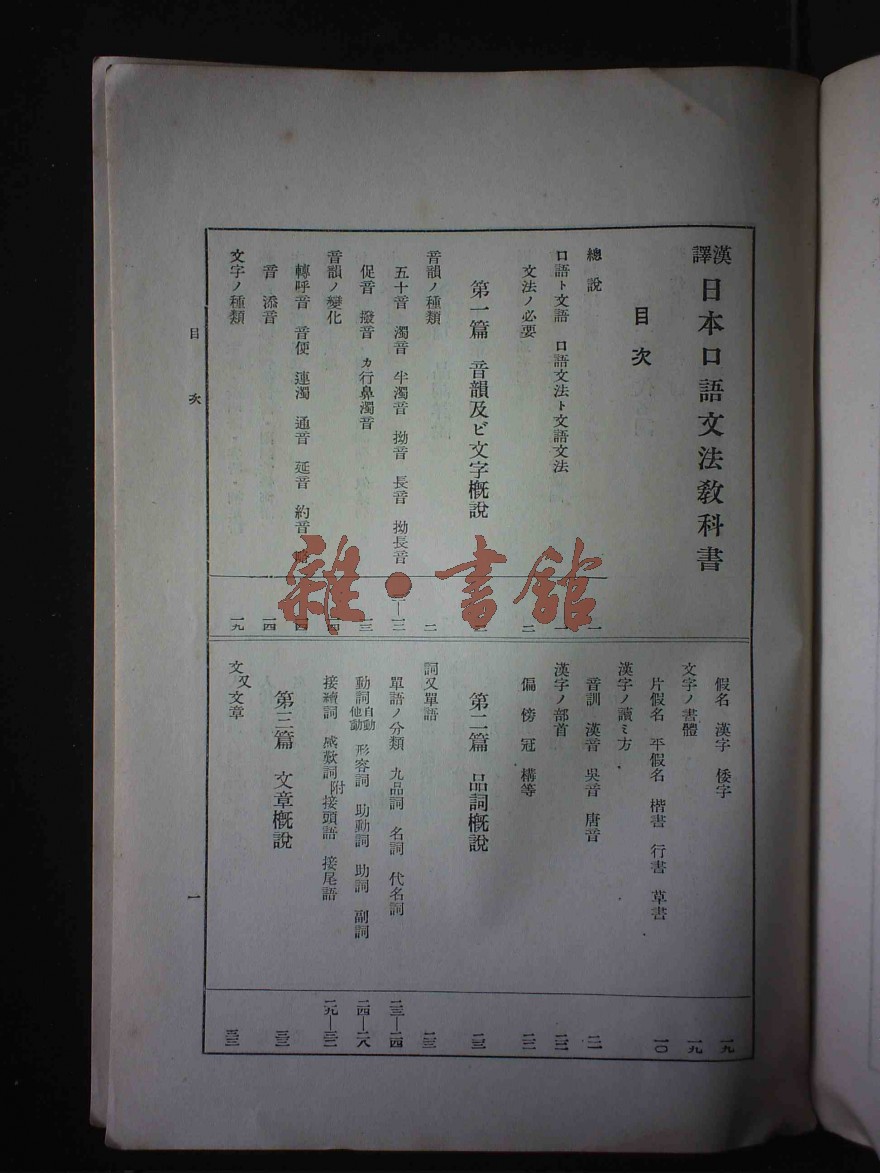 漢譯 日本口語文法敎科書
目次
總說 一
口語ト文語 口語文法ト文語文法 一
文法ノ必要 二
第一篇 音韻及ビ文字槪說
音韻ノ種類 二
五十音 濁音 半濁音 拗音 長音 拗長音
促音 撥音 カ行鼻濁音 一三
音韻ノ變化
轉呼音 音便 連濁 通音 延音 約音
音 添音 一四
文字ノ種類 一九
假名 漢字 倭字 一九
文字ノ書體 一九
片假名 平假名 楷書 行書 草書
漢字ノ讀ミ方
音訓 漢音 吳音 唐音
漢字ノ部首
偏 傍 冠 構等
第二篇 品詞槪說 二三
詞又單語 二三
單語ノ分類 九品詞 名詞 代名詞 二三—二四
動詞自動他動 形容詞 助動詞 助詞 副詞 二四—二八
接續詞 感歎詞附接頭語 接尾語 二九—三二
第三篇 文章槪說
文又文章
目次 一
雜·書館